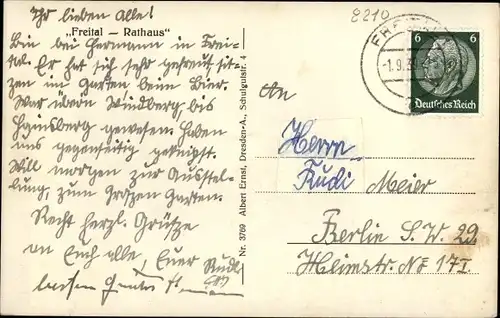 Ihr lieben alle!
"Freital — Rathaus"
Bin bei Hermann in Frei-
tal. Er hat sich sehr gefreut, sit-
zen im Garten beim Bier.
War übern Windberg, bis
Hainsberg gewesen. Haben
uns gegenseitig geknipst.
Will morgen zur Ausstel-
lung, zum Großen Garten.
Recht herzl. Grüße
an Euch alle, Euer Rudi
Nr. 3769 Albert Ernst, Dresden-A., Schulgutstr. 4
8210
1.9.
6 6
Deutsches Reich
An
Herrn
Rudi Meier
Berlin S.W. 29
Heimstr. No 17 I.